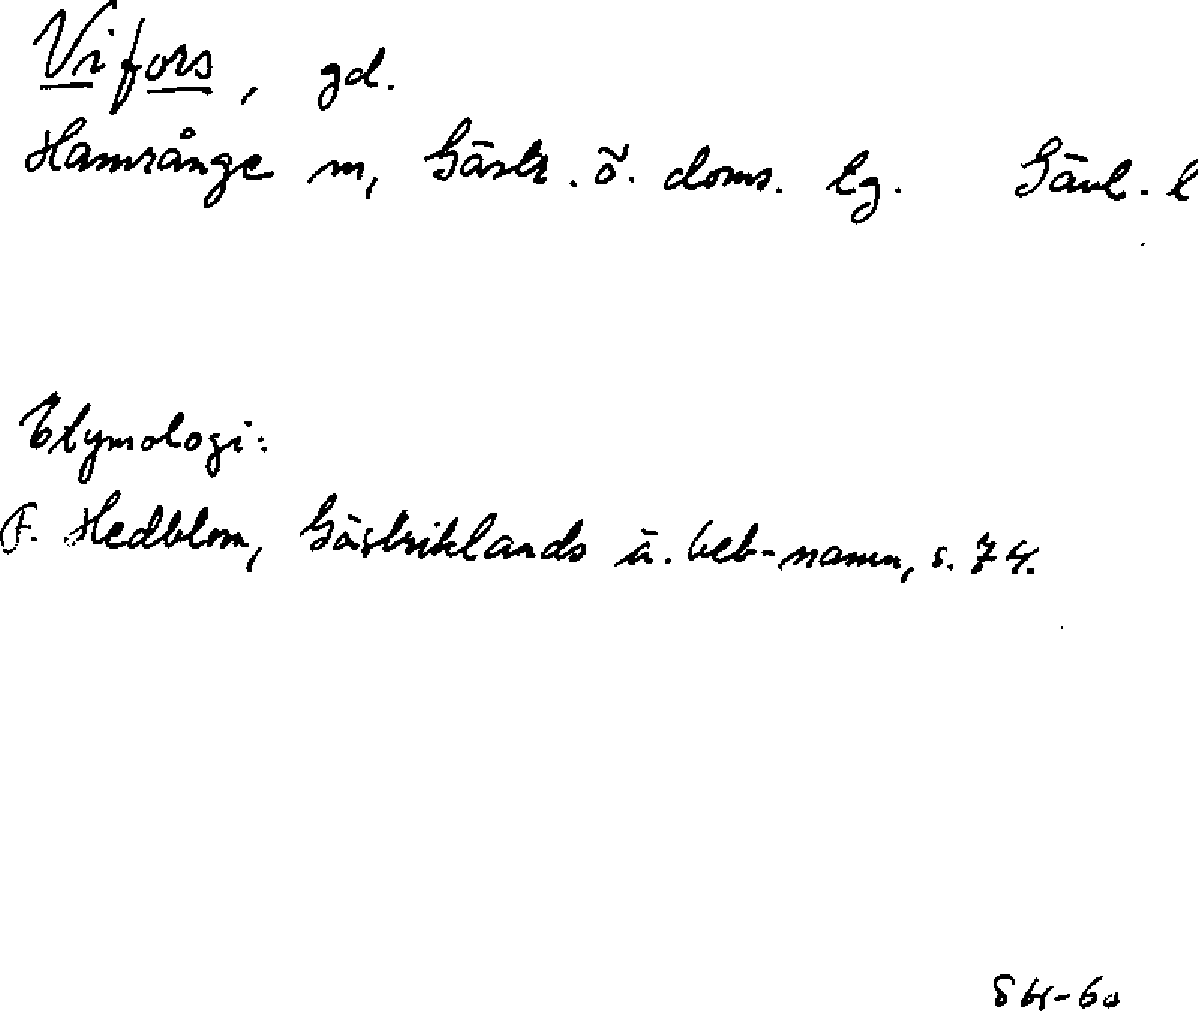 Vifors, gd.
Hamrånge sn, Gästr. ö. doms. lg. Gävl. l
Etymologi:
F. Hedblom, Gästriklands ä. beb-namn, s. 74.